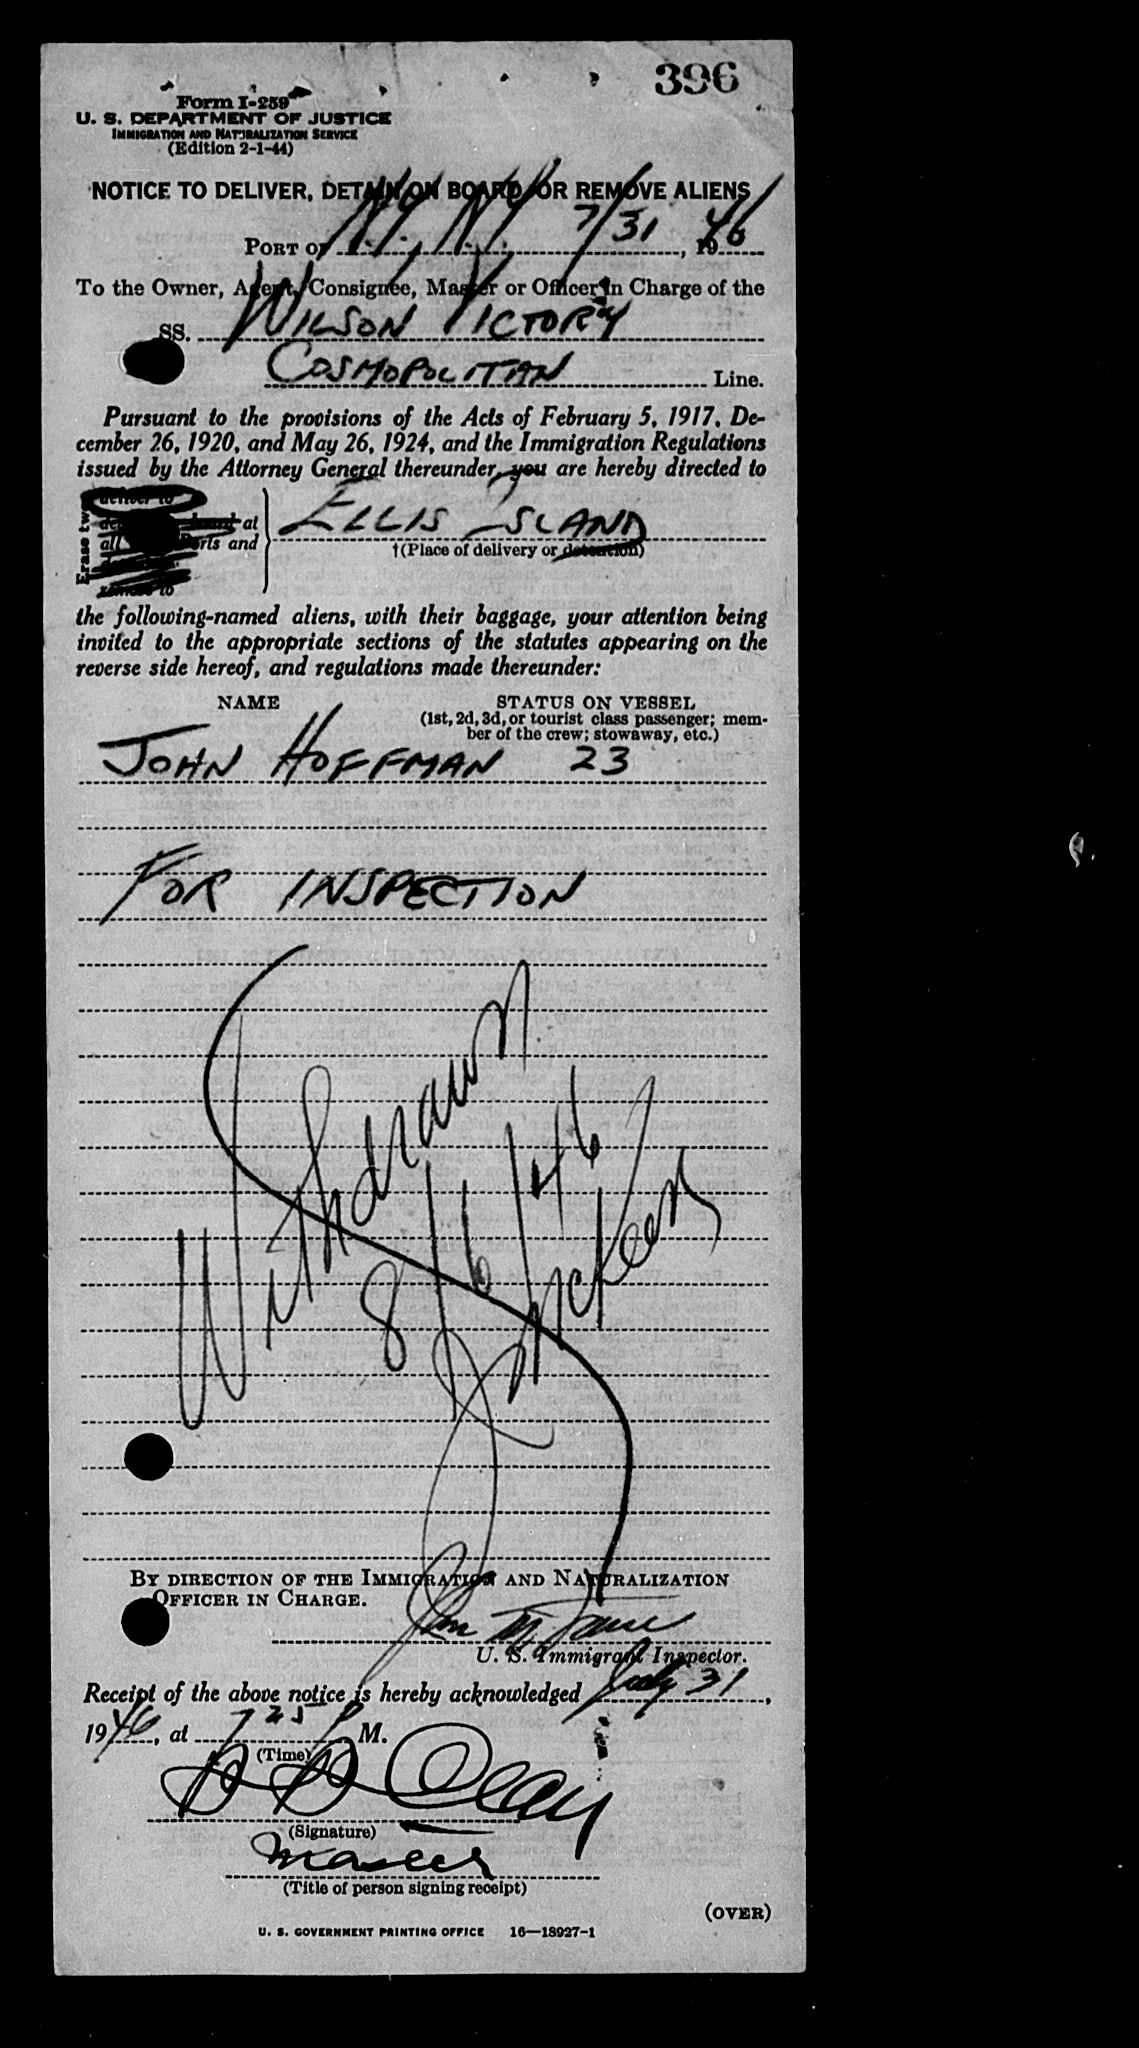 396
Form I-259
U. S. DEPARTMENT OF JUSTICE
IMMIGRATION AND NATURALIZATION SERVICE
(Edition 2-1-44)
NOTICE TO DELIVER, DETAIN ON BOARD, OR REMOVE ALIENS
PORT OF N.Y., N.Y. 7/31, 1946
To the Owner, Agent, Consignee, Master or Officer in Charge of the
SS. WILSON VICTORY
COSMOPOLITAN Line.
Pursuant to the provisions of the Acts of February 5, 1917, De-
cember 26, 1920, and May 26, 1924, and the Immigration Regulations
issued by the Attorney General thereunder, you are hereby directed to
Erase two
deliver to
board at
all Ports and
remove to
ELLIS ISLAND
†(Place of delivery or detention)
the following-named aliens, with their baggage, your attention being
invited to the appropriate sections of the statutes appearing on the
reverse side hereof, and regulations made thereunder:
NAME STATUS ON VESSEL
(1st, 2d, 3d, or tourist class passenger; mem-
ber of the crew; stowaway, etc.)
JOHN HOFFMAN 23
FOR INSPECTION
Withdrawn
8/6/46
McKeen
BY DIRECTION OF THE IMMIGRATION AND NATURALIZATION
OFFICER IN CHARGE.
U. S. Immigrant Inspector.
Receipt of the above notice is hereby acknowledged July 31,
1946, at 7 25 P M.
(Time)
(Signature)
Master
(Title of person signing receipt)
(OVER)
U. S. GOVERNMENT PRINTING OFFICE 16—18927-1